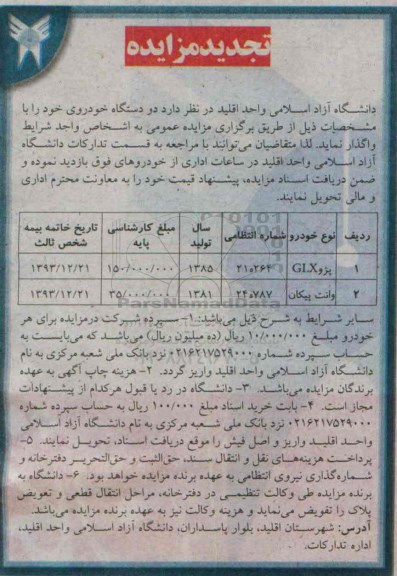 تجدید مزایده
دانشگاه آزاد اسلامی واحد اقلید در نظر دارد دو دستگاه خودروی خود را با
مشخصات ذیل از طریق برگزاری مزایده عمومی به اشخاص واجد شرایط
واگذار نماید. لذا متقاضیان می‌توانند با مراجعه به قسمت تدارکات دانشگاه
آزاد اسلامی واحد اقلید در ساعات اداری از خودروهای فوق بازدید نموده و
ضمن دریافت اسناد مزایده، پیشنهاد قیمت خود را به معاونت محترم اداری
و مالی تحویل نمایند.
ردیف نوع خودرو شماره انتظامی سال تولید مبلغ کارشناسی پایه تاریخ خاتمه بیمه شخص ثالث
۱ پژوGLX ۲۱۰۲۶۴ ۱۳۸۵ ۱۵۰/۰۰۰/۰۰۰ ۱۳۹۳/۱۲/۲۱
۲ وانت پیکان ۲۴۰۷۸۷ ۱۳۸۱ ۳۵/۰۰۰/۰۰۰ ۱۳۹۳/۱۲/۲۱
ParsNamadData
سایر شرایط به شرح ذیل می‌باشد: ۱- سپرده شرکت درمزایده برای هر
خودرو مبلغ ۱۰/۰۰۰/۰۰۰ ریال (ده میلیون ریال) می‌باشد که می‌بایست به
حساب سپرده شماره ۰۲۱۶۲۱۷۵۲۹۰۰۰ نزد بانک ملی شعبه مرکزی به نام
دانشگاه آزاد اسلامی واحد اقلید واریز گردد. ۲- هزینه چاپ آگهی به عهده
برندگان مزایده می‌باشند. ۳- دانشگاه در رد یا قبول هرکدام از پیشنهادات
مجاز است. ۴- بابت خرید اسناد مبلغ ۱۰۰/۰۰۰ ریال به حساب سپرده شماره
۰۲۱۶۲۱۷۵۲۹۰۰۰ نزد بانک ملی شعبه مرکزی به نام دانشگاه آزاد اسلامی
واحد اقلید واریز و اصل فیش را موقع دریافت اسناد، تحویل نمایند. ۵-
پرداخت هزینه‌های نقل و انتقال سند، حق‌الثبت و حق‌التحریر دفترخانه و
شماره‌گذاری نیروی انتظامی به عهده برنده مزایده خواهد بود. ۶- دانشگاه به
برنده مزایده طی وکالت تنظیمی در دفترخانه، مراحل انتقال قطعی و تعویض
پلاک را تفویض می‌نماید و هزینه وکالت نیز به عهده برنده مزایده می‌باشد.
آدرس: شهرستان اقلید، بلوار پاسداران، دانشگاه آزاد اسلامی واحد اقلید،
اداره تدارکات.